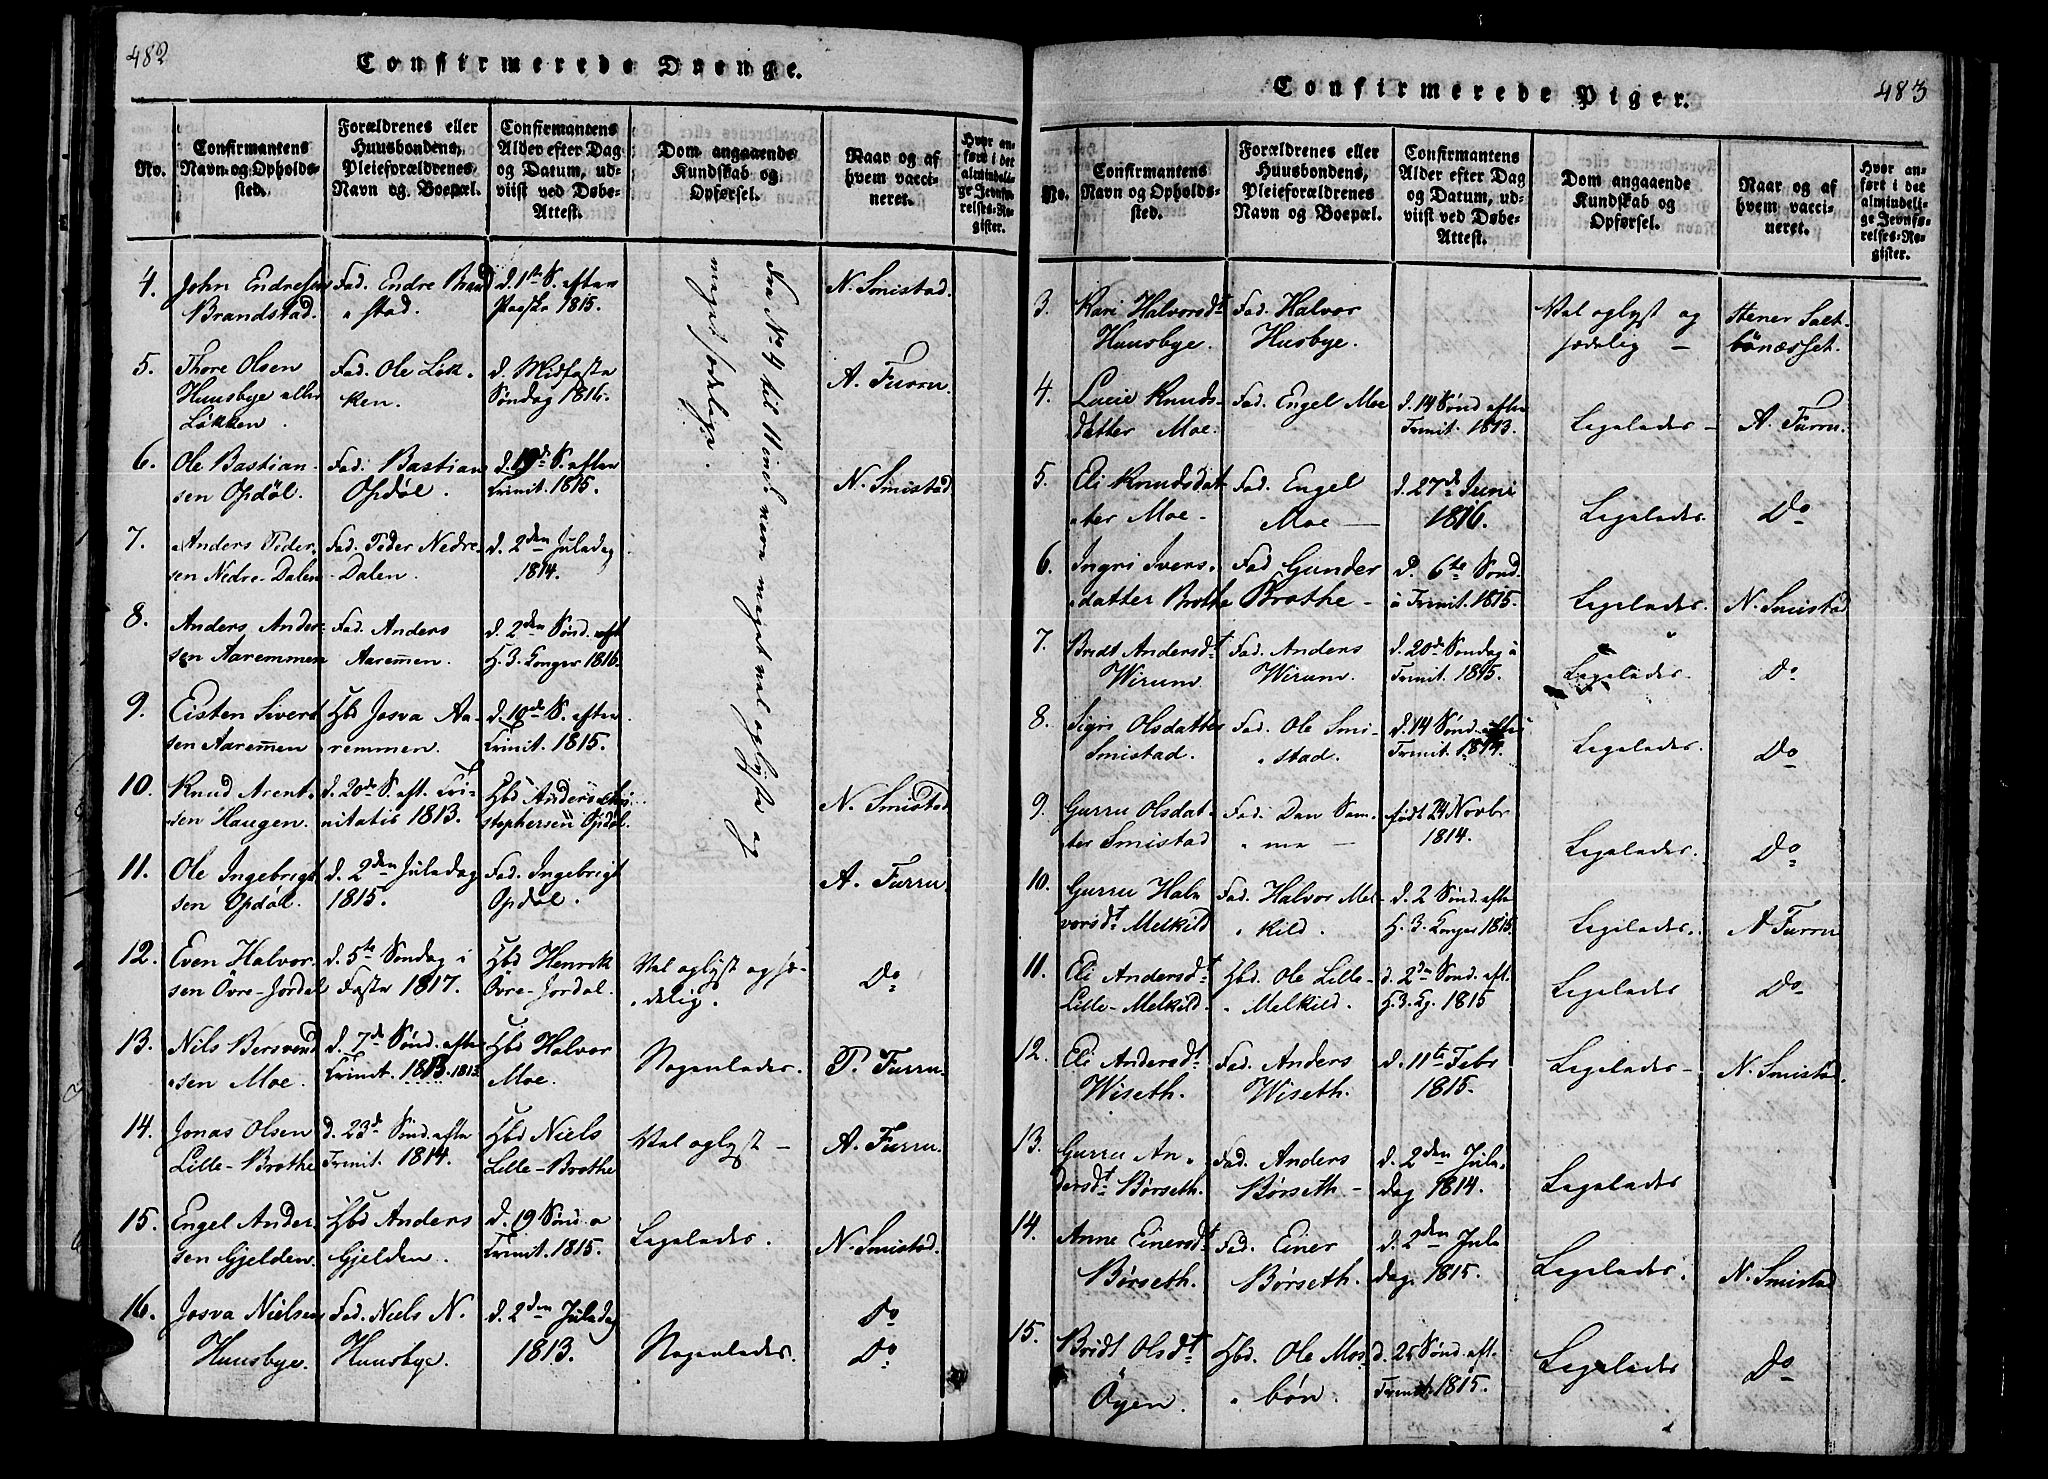 482
Confirmerede Drenge.
No.
Confirmantens
Navn og Opholds-
sted.
Forældrenes eller
Huusbondens,
Pleieforældrenes
Navn og Boepæl.
Confirmantens
Alder efter Dag
og Datum, ud-
viist ved Døbe-
Attest.
Dom angaaende
Kundskab og
Opførsel.
Naar og af
hvem vacci-
neret.
Hvor an-
ført i det
almindeli-
ge Jevnfø-
relses-Re-
gister.
fra No 4 til 11 incl. vare meget vel oplyste og
meget sædelige.
4.
John Endresen
Brandstad.
Fad. Endre Brand
stad.
d. 1ste S. efter
Paaske 1815.
N. Smistad.
5.
Thore Olsen
Huusbye eller
Løkken.
Fad. Ole Løk-
ken.
d. Midfaste
Søndag 1816.
A. Furru.
6.
Ole Bastian-
sen Opdøl.
Fad. Bastian
Opdøl.
d. 19de S. efter
Trinit. 1815.
N. Smistad
7.
Anders Peder-
sen Nedre-Dalen
Fad. Peder Nedre-
Dalen.
d. 2den Juledag
1814.
8.
Anders Ander-
sen Aaremmen
Fad. Anders
Aaremen.
d. 2den Sønd. eft
H. 3. Konger 1816.
9.
Eisten Sivert
sen Aaremen
Hbd Josva Aa-
remmen.
d. 10de S. efter
Trinit. 1815.
10.
Knud Arent-
sen Haugen.
d. 20de S. eft. Tri-
nitatis 1813.
Hbd Anders Chri-
stophersen Opdøl.
N. Smistad
11.
Ole Ingebrigt
sen Opdøl.
d. 2den Juledag
1815.
Fad. Ingebrigt
Opdøl.
A. Furru.
12.
Even Halvor-
sen Övre-Jordal
d. 5te Søndag i
Faste 1817.
Hbd Henrik
Övre-Jordal.
Vel oplyst og sæ-
delig.
Do
13.
Nils Bersvend
sen Moe.
d. 7de Sønd. efter
Trinit. 1813. 1813.
Hbd Halvor
Moe.
Nogenledes.
P. Furru.
14.
Jonas Olsen
Lille-Brothe
d. 23de Sønd. efter
Trinit. 1814.
Hbd Niels
Lille-Brothe
Vel oplyst -
A. Furru.
15.
Engel Ander-
sen Gjelden.
Hbd Anders
Gjelden.
d. 19 Sønd. e
Trinit. 1815.
Ligeledes.
N. Smistad.
16.
Josva Nielsen
Huusbye.
Fad. Niels N.
Huusbye.
d. 2den Juledag
1813.
Nogenledes.
Do
Do
483
Confirmerede Piger.
No.
Confirmantens
Navn og Opholds-
sted.
Forældrenes eller
Huusbondens,
Pleieforældrenes
Navn og Boepæl.
Confirmantens
Alder efter Dag
og Datum, ud-
viist ved Døbe-
Attest.
Dom angaaende
Kundskab og
Opførsel.
Naar og af
hvem vacci-
neret.
Hvor an-
ført i det
almindeli-
ge Jevnfø-
relses-Re-
gister.
3.
Kari Halvorsdt
Huusbye.
Fad. Halvor
Husbye.
Vel oplyst og
sædelig -
Stener Salt-
bönæsset.
4.
Lucie Knuds-
datter Moe.
Fad. Engel Moe
d. 14 Sønd efter
Trinit. 1813.
Ligeledes -
A. Furru.
5.
Eli Knudsdat
ter Moe -
Fad. Engel
Moe -
d. 27de Juni
1816.
Ligeledes -
Do
6.
Ingri Ivers-
datter Brothe
Fad Gunder
Brothe -
d. 6te Sønd.
e Trinit. 1815.
Ligeledes.
N. Smistad
7.
Bredt Andersdt
Wirum.
Fad. Anders
Wirum.
d. 20de Søndag e
Trinit. 1815.
Ligeledes.
Do
8.
Sigri Olsdatter
Smistad.
Fad. Ole Smi-
stad.
d. 14 Sønd. efter
Trinit. 1814.
Ligeledes.
Do
9.
Gurru Olsdat-
ter Smistad
Fad. Den Sam-
me -
født 24 Novbr
1814.
Ligeledes.
Do
10.
Gurru Hal-
vorsdt Melkild
Fad. Halvor Mel-
kild.
d. 2 Sønd. efter
H. 3. Konger 1815.
Ligeledes.
A Furru
11.
Eli Andersdt
Lille-Melkild.
Hbd. Ole Lille-
Melkild.
d. 2den Sønd. eft.
H. 3. Kg. 1815
Ligeledes
Do
12.
Eli Andersdt
Wiseth.
Fad. Anders
Wiseth.
d. 11te Febr
1815.
Ligeledes -
N. Smistad.
13.
Gurru An-
dersdt Børseth.
Fad. Anders
Børseth -
d. 2den Jule-
dag 1814.
Ligeledes
14.
Anne Einersdt
Børseth.
Fad. Einer
Børseth.
d. 2den Jule
dag. 1815.
Ligeledes.
N. Smistad
15.
Bridt Olsdt
Öyen.
Hbd. Ole Mos-
bön.
d. 25 Sønd. eft.
Trinit. 1815.
Ligeledes
Do